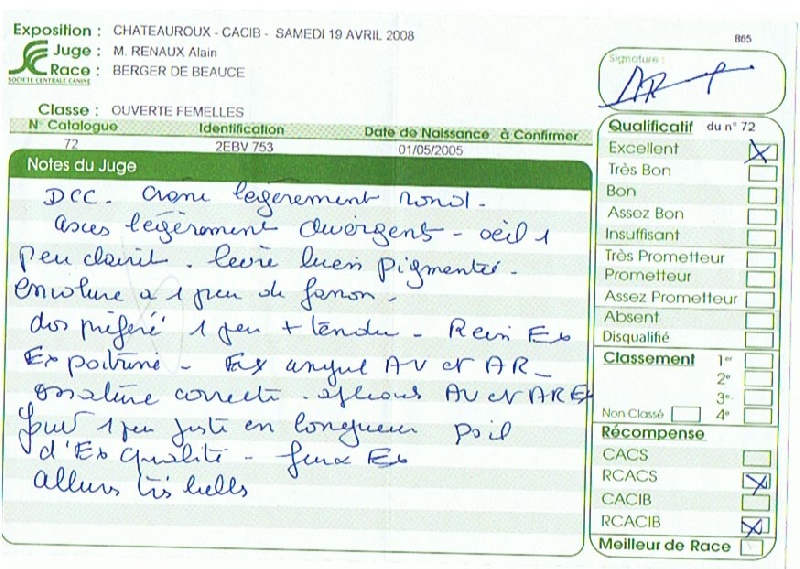 Exposition : CHATEAUROUX - CACIB - SAMEDI 19 AVRIL 2008
B65
Juge : M. RENAUX Alain
Race : BERGER DE BEAUCE
SOCIETE CENTRALE CANINE
Classe : OUVERTE FEMELLES
N° Catalogue Identification Date de Naissance à Confirmer
72 2EBV 753 01/05/2005
Notes du Juge
DCC. Crane legerement rond -
axes légèrement divergents - oeil 1
peu clair. levre bien pigmentée -
encolure a 1 peu de fanon -
dos préféré 1 peu + tendu - Rein Ex
Ex poitrine - Ex angul AV et AR -
ossature correcte - aplombs AV et AR Ex
fouet 1 peu juste en longueur poil
d'Ex qualité - feux Ex
allures très belles
Signature :
Qualificatif du n° 72
Excellent X
Très Bon
Bon
Assez Bon
Insuffisant
Très Prometteur
Prometteur
Assez Prometteur
Absent
Disqualifié
Classement 1er
2e
3e
Non Classé 4e
Récompense
CACS
RCACS X
CACIB
RCACIB X
Meilleur de Race